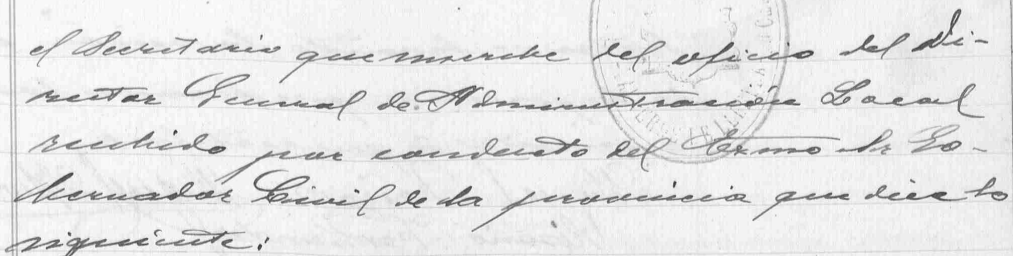 el Secretario que suscribe del oficio del Di-
rector General de Administracion Local
recibido por conducto del Excmo Sr Go-
bernador Civil de la provincia que dice lo
siguiente: